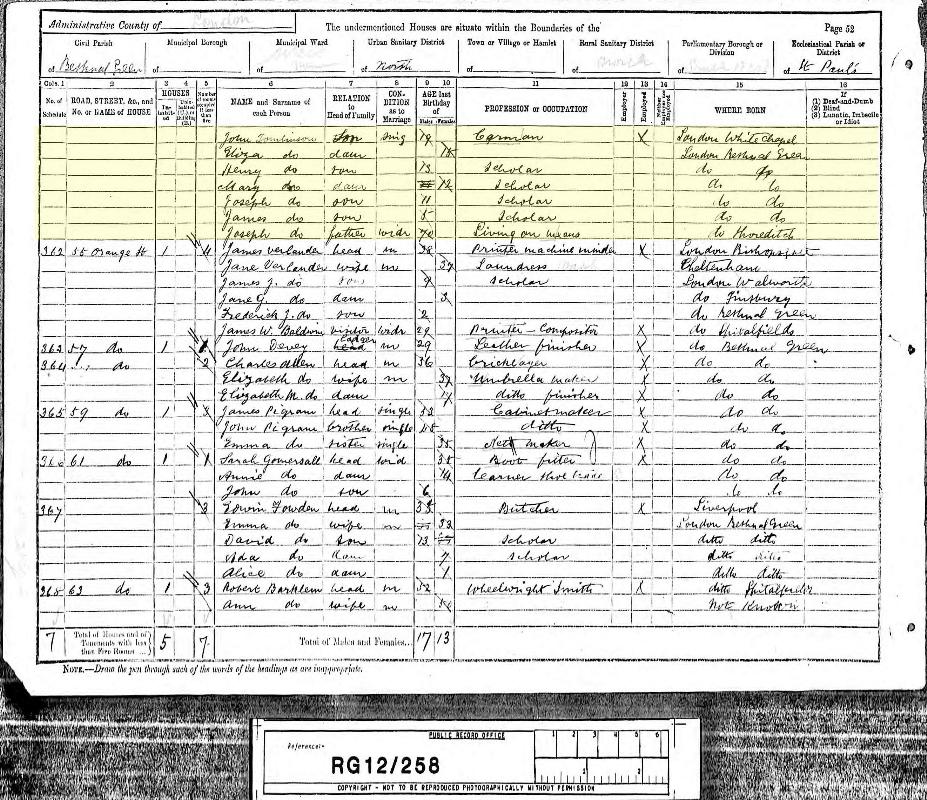 Administrative County of London The undermentioned Houses are situate within the Boundaries of the Page 52
Civil Parish Municipal Borough Municipal Ward Urban Sanitary District Town or Village or Hamlet Rural Sanitary District Parliamentary Borough or Division Ecclesiastical Parish or District
of Bethnal Green of of of North of of of of St Paul's
Cols. 1 2 3 4 5 6 7 8 9 10 11 12 13 14 15 16
No. of Schedule ROAD, STREET, &c., and No. or NAME of HOUSE HOUSES In-habited Number of rooms occupied if less than five NAME and Surname of each Person RELATION to Head of Family CON-DITION as to Marriage AGE last Birthday of Males Females PROFESSION or OCCUPATION Employer Employed Neither WHERE BORN If (1) Deaf-and-Dumb (2) Blind (3) Lunatic, Imbecile or Idiot
John Tomlinson son sing 19 Carman X London White Chapel
Eliza do daur London Bethnal Green
Henry do son 13 Scholar do do
Mary do daur 12 Scholar do do
Joseph do son 11 Scholar do do
James do son 5 Scholar do do
Joseph do father widr 70 Living on means do Shoreditch
362 55 Orange St 1 4 James Verlander head m 38 Printer machine minder X London Bishopsgate
Jane Verlander wife m 37 Laundress Cheltenham
James J. do son 9 Scholar London Walworth
Jane G. do daur 3 do Finsbury
Frederick J. do son 2 do Bethnal Green
James W. Baldwin visitor widr 29 Printer - Compositor X do Spitalfields
363 57 do 1 John Devey Lodger m 29 Leather finisher X do Bethnal Green
364 do 2 Charles Allen head m 36 bricklayer X do do
Elizabeth do wife m 37 Umbrella maker X do do
Elizabeth M. do daur 17 ditto finisher X do do
365 59 do 1 3 James Pigram head single Cabinet maker X do do
John Pigram brother single ditto X do do
Emma do sister single 35 maker do do
366 61 do 1 1 Sarah Gomersall head wid 35 Boot fitter X do do
Annie do daur 14 Learner shoe trade do do
John do son 6 do do
367 3 Edwin Fowden head m 33 Butcher X Liverpool
Emma do wife m 33 London Bethnal Green
David do son 13 Scholar ditto ditto
Ada do daur 7 Scholar ditto ditto
Alice do daur 1 ditto ditto
368 63 do 1 3 Robert Barklem head m 52 Wheelwright Smith X ditto Spitalfields
Ann do wife m Not Known
7 Total of Houses and of Tenements with less than Five Rooms 5 7 Total of Males and Females... 17 13
NOTE.—Draw the pen through such of the words of the headings as are inappropriate.
PUBLIC RECORD OFFICE 1 2 3 4 5 6
Reference:-
RG12/258 1 2
COPYRIGHT - NOT TO BE REPRODUCED PHOTOGRAPHICALLY WITHOUT PERMISSION